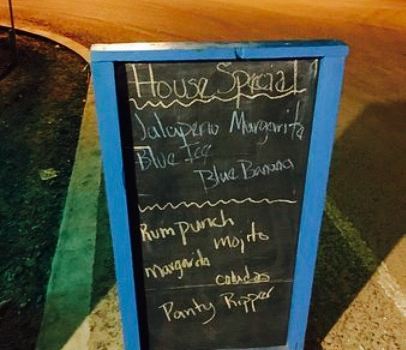 House Special
Jalapeno Margarita
Blue Ice
Blue Banana
Rum punch
mojito
margarita
coladas
Panty Ripper